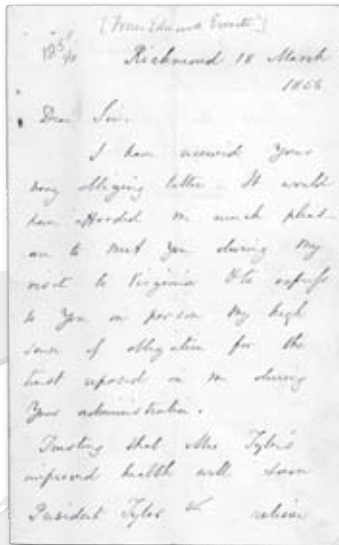 [From Edward Everett]
Richmond 18 March
1856
Dear Sir,
I have received your
very obliging letter. It would
have afforded me much pleas-
ure to meet you during my
visit to Virginia & to express
to you in person my high
sense of obligation for the
trust reposed in me during
your administration.
Trusting that Mrs Tyler's
improved health will soon
President Tyler relieve